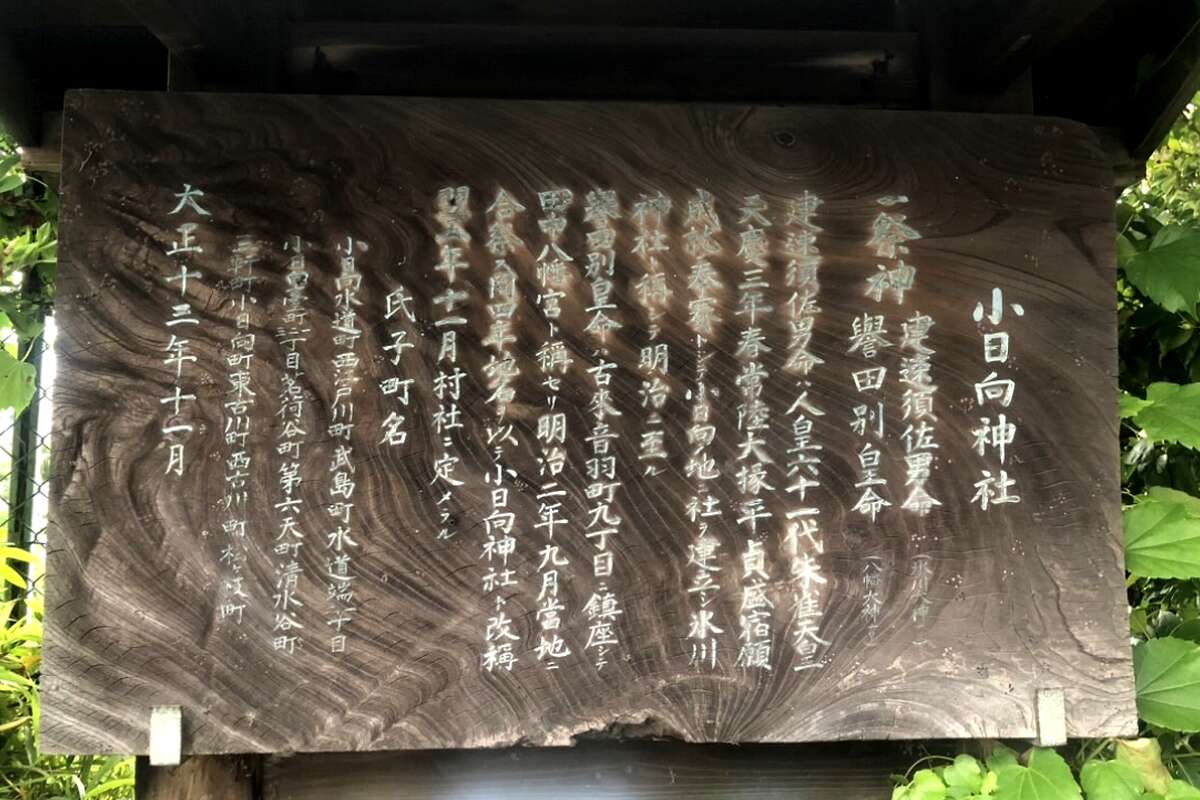 小日向神社
一祭神 建速須佐男命
譽田別皇命 八幡大神
建速須佐男命ハ人皇六十一代朱雀天皇
天慶三年春常陸大掾平貞盛宿願
成就奉賽トシテ小日向ノ地ニ社ヲ建立シ氷川
神社ト稱シテ明治ニ至ル
譽田別皇命ハ古來音羽町九丁目ニ鎮座シテ
田中八幡宮ト稱セリ明治二年九月當地ニ
合 四年地名ヲ以テ小日向神社ト改稱
同五年十一月村社ニ定メラル
氏子町名
小日向水道町西江戸川町武島町水道端二丁目
小日向臺町三丁目茗荷谷町第六天町清水谷町
三軒町小日向町東古川町西古川町松ヶ枝町
大正十三年十一月